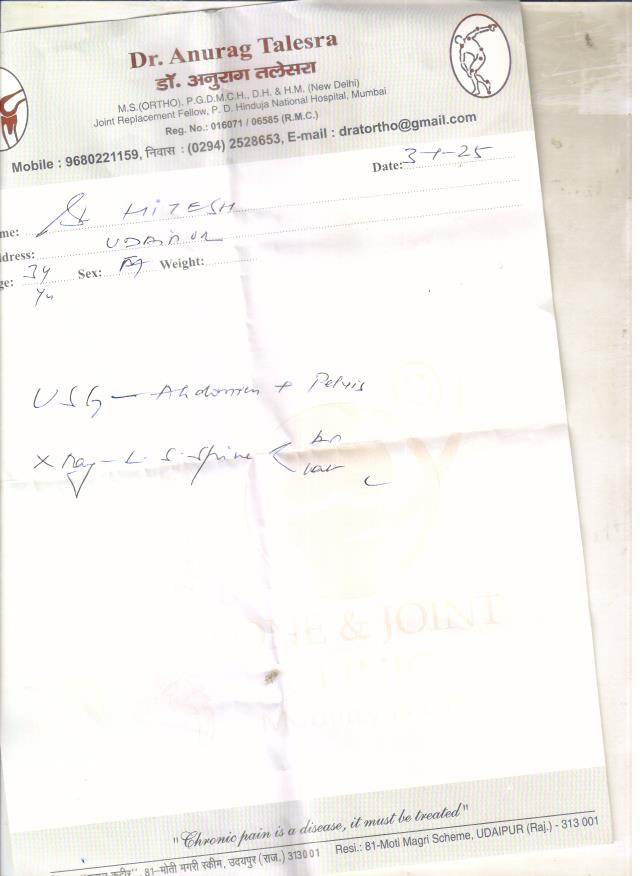 Dr. Anurag Talesra
डॉ. अनुराग तलेसरा
M.S.(ORTHO), P.G.D.M.C.H., D.H. & H.M. (New Delhi)
Joint Replacement Fellow, P. D. Hinduja National Hospital, Mumbai
Reg. No.: 016071 / 06585 (R.M.C.)
Mobile : 9680221159, निवास : (0294) 2528653, E-mail : dratortho@gmail.com
Date: 3-1-25
me: HITESH
dress: UDAIPUR
ge: 34 Sex: M Weight:
Yr
USG - Abdomen + Pelvis
X Ray - L. S. Spine < AP
Lat
NE & JOINT
"Chronic pain is a disease, it must be treated"
81-मोती मगरी स्कीम, उदयपुर (राज.) 313001 Resi.: 81-Moti Magri Scheme, UDAIPUR (Raj.) - 313 001